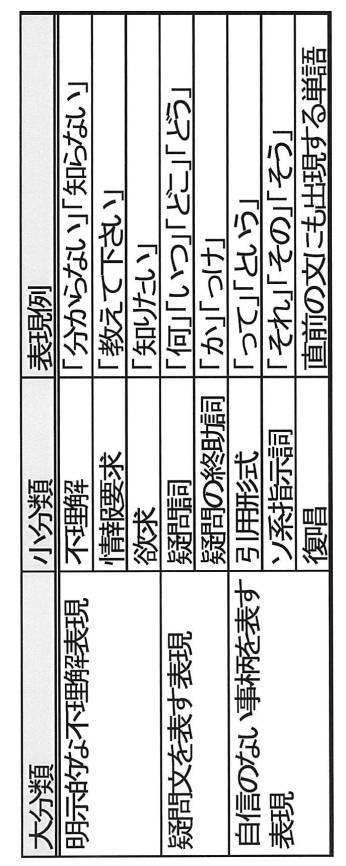 大分類 小分類 表現例
明示的な不理解表現 不理解 「分からない」「知らない」
情報要求 「教えて下さい」
欲求 「知りたい」
疑問文を表す表現 疑問詞 「何」「いつ」「どこ」「どう」
疑問の終助詞 「か」「っけ」
自信のない事柄を表す
表現
引用形式 「って」「という」
ソ系指示詞 「それ」「その」「そう」
復唱 直前の文にも出現する単語